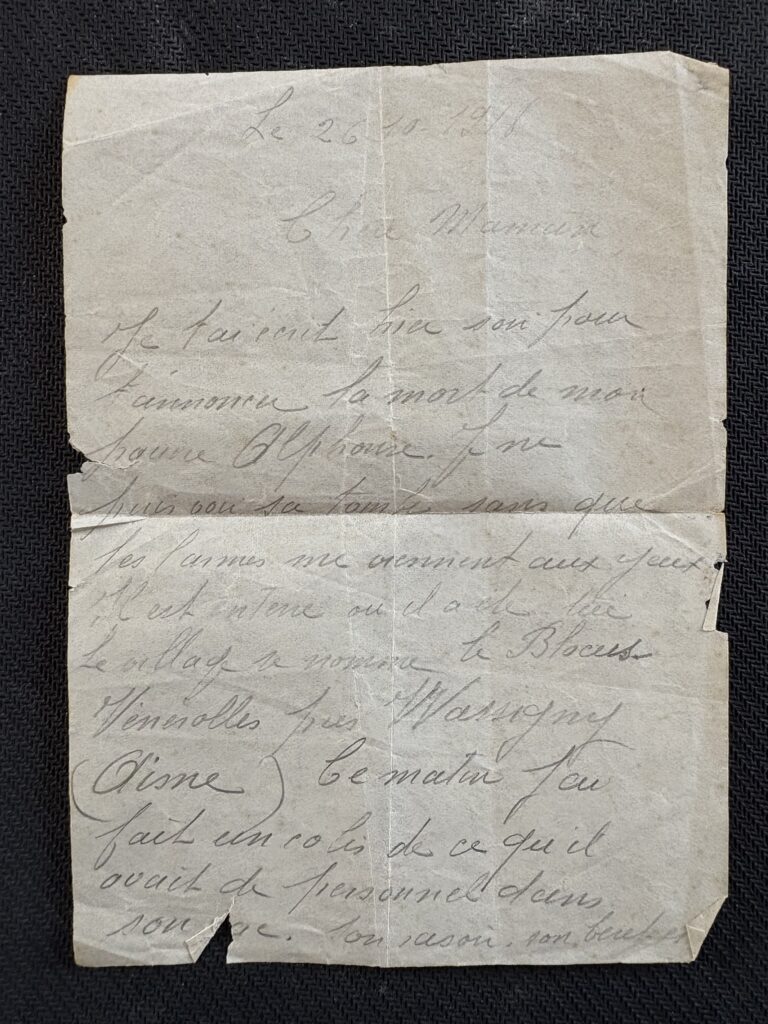 Le 26 10-1918
Chère Maman
Je t'ai écrit hier soir pour
t'annoncer la mort de mon
pauvre Alphonse. Je ne
puis voir sa tombe sans que
les larmes me viennent aux yeux
Il est enterré ou il a été tué
Le village se nomme le Blocus
Vénérolles près Wassigny
(Aisne) Ce matin j'ai
fait un colis de ce qu'il
avait de personnel dans
son sac. Son rasoir, son